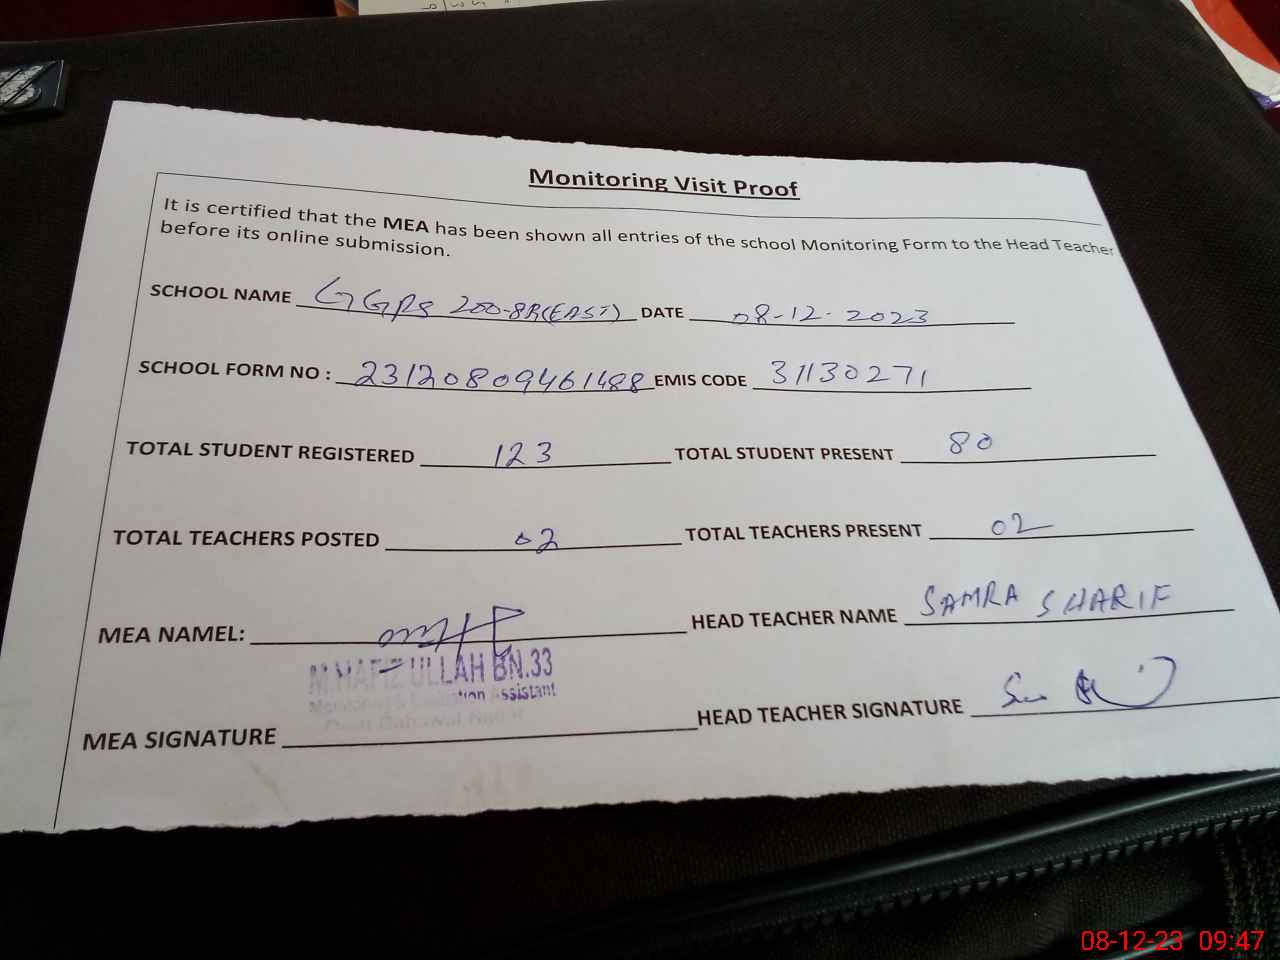 Monitoring Visit Proof
It is certified that the MEA has been shown all entries of the school Monitoring Form to the Head Teacher
before its online submission.
SCHOOL NAME GGPS 200-8R(EAST) DATE 08-12-2023
SCHOOL FORM NO : 23120809461488 EMIS CODE 31130271
TOTAL STUDENT REGISTERED 123 TOTAL STUDENT PRESENT 80
TOTAL TEACHERS POSTED 02 TOTAL TEACHERS PRESENT 02
MEA NAMEL: HEAD TEACHER NAME SAMRA SHARIF
M.HAFIZ ULLAH BN.33
Assistant
MEA SIGNATURE HEAD TEACHER SIGNATURE
08-12-23 09:47